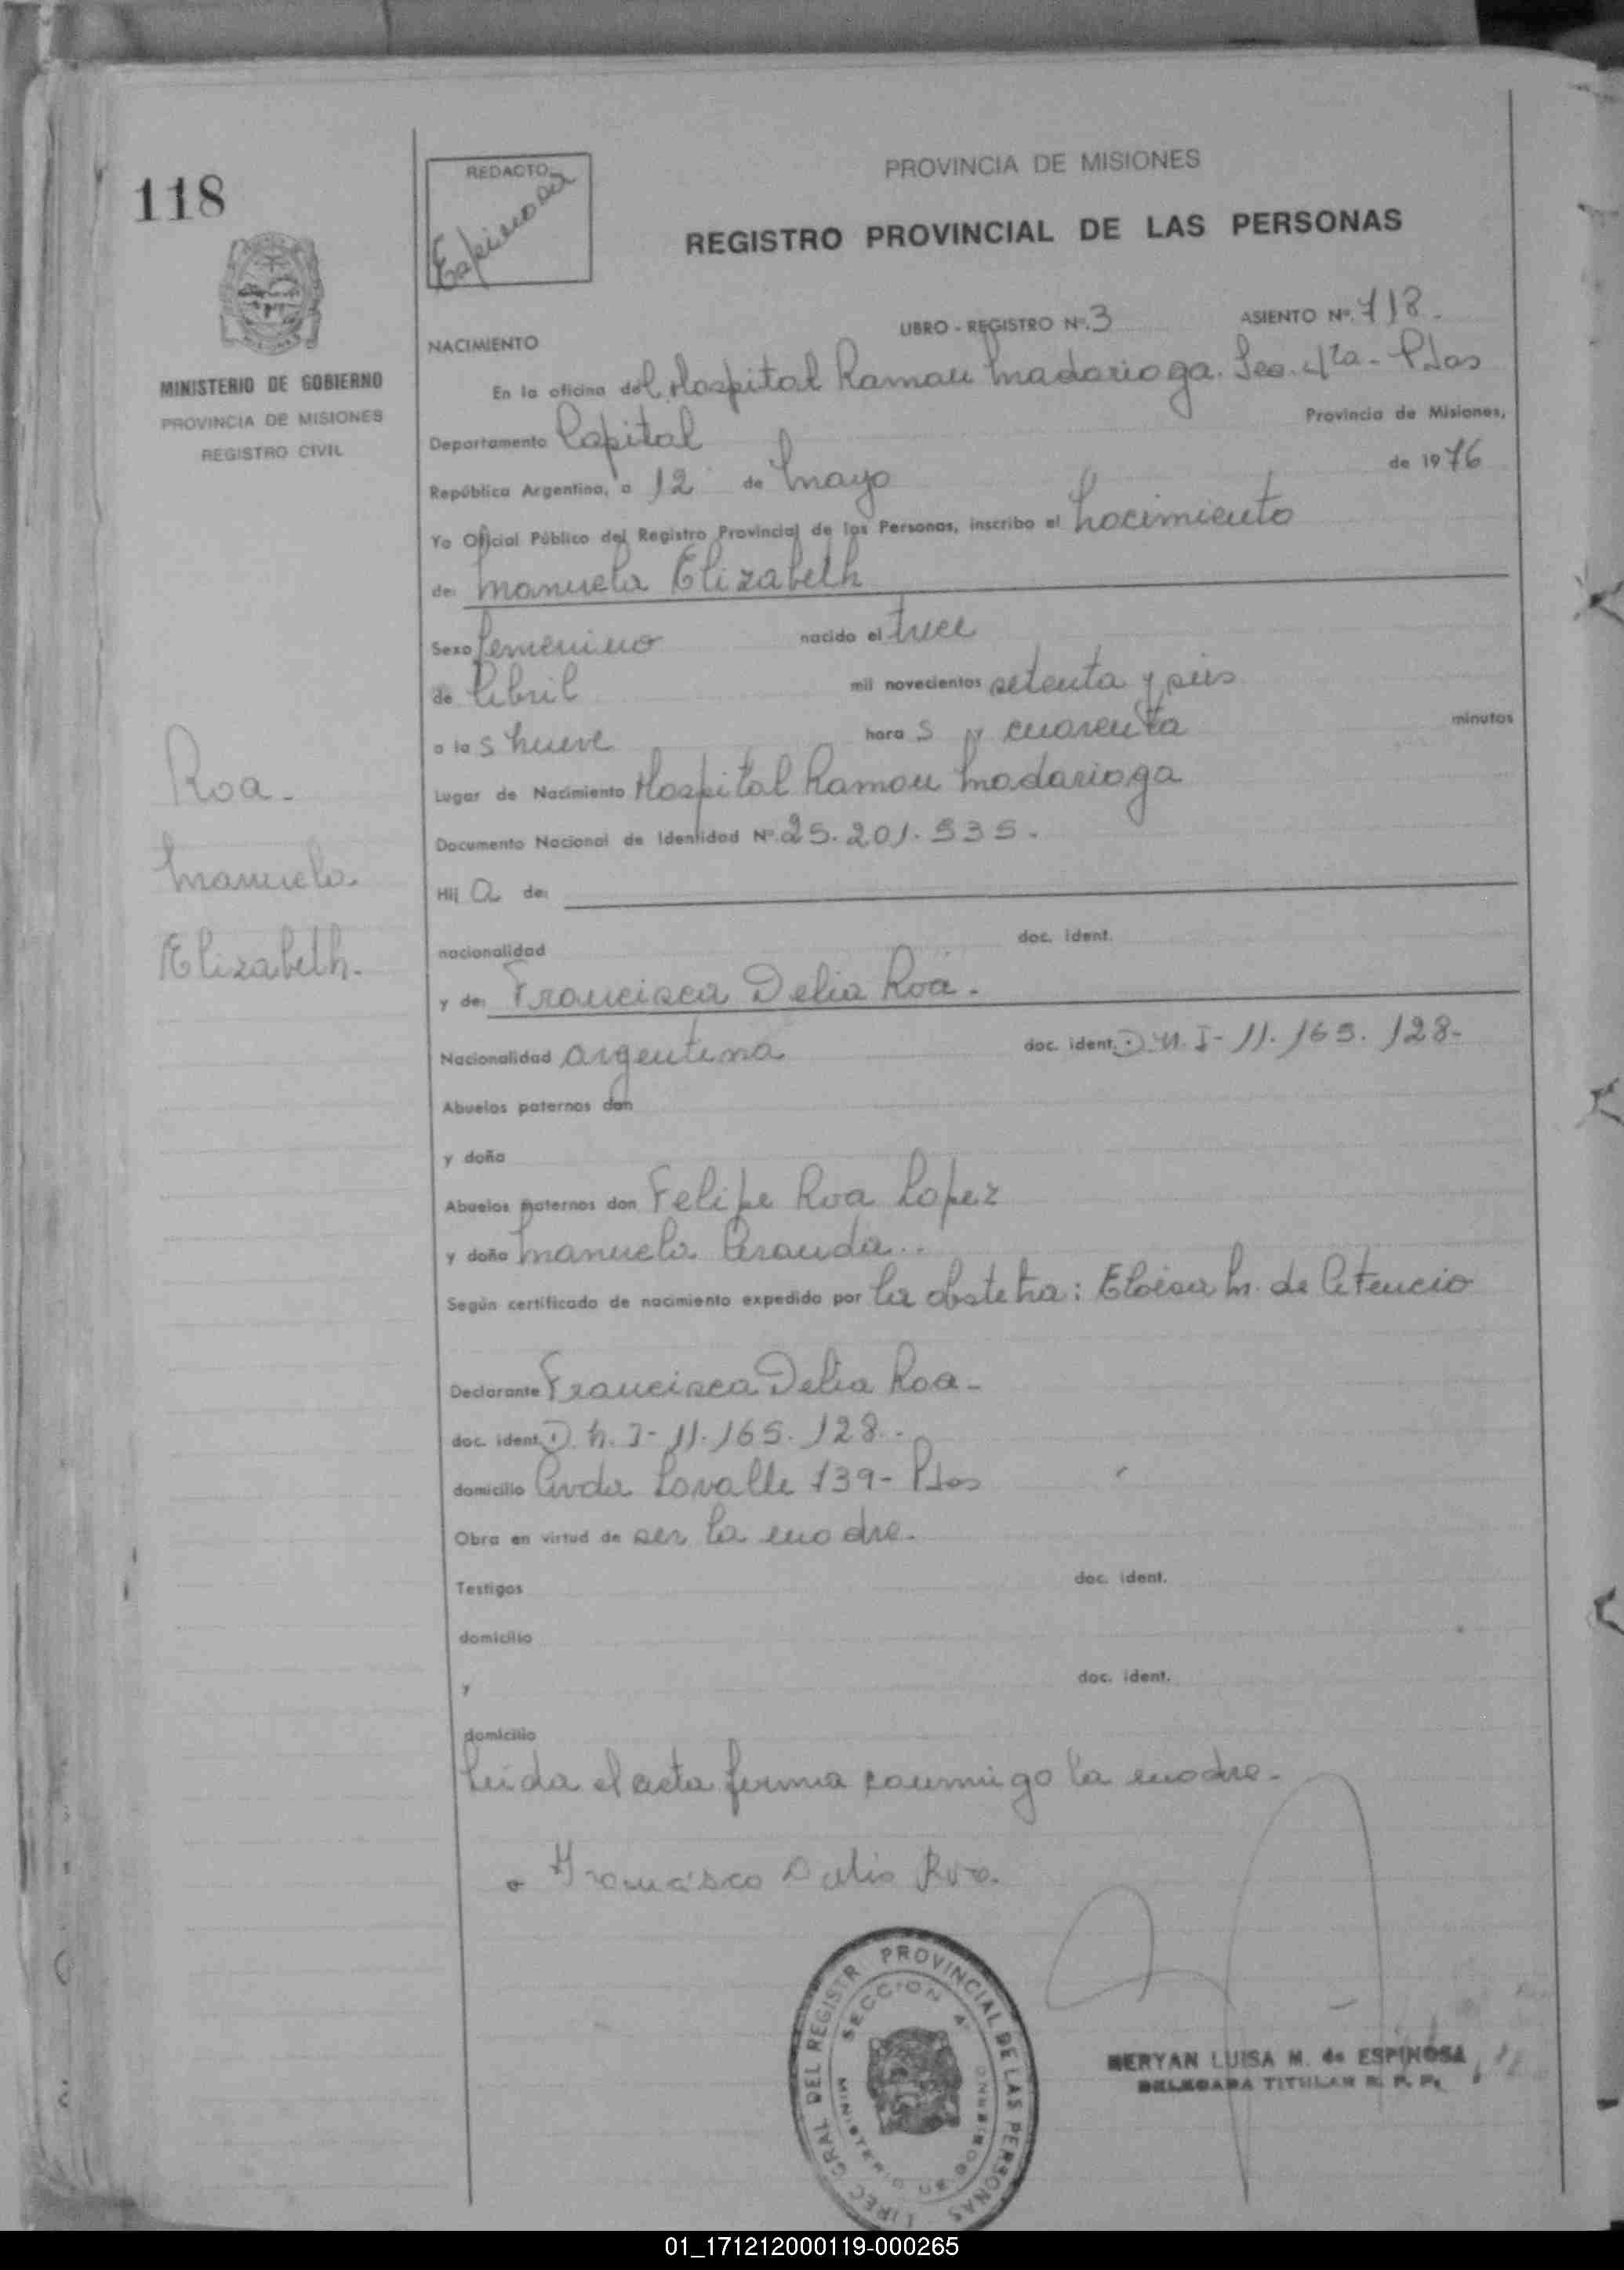 118
REDACTO
Espinosa
PROVINCIA DE MISIONES
REGISTRO PROVINCIAL DE LAS PERSONAS
MINISTERIO DE GOBIERNO
PROVINCIA DE MISIONES
REGISTRO CIVIL
LIBRO - REGISTRO Nº. 3 ASIENTO Nº. 718.
NACIMIENTO
En la oficina del Hospital Ramon Madariaga. Sec. 4ta - Pdas
Provincia de Misiones,
Departamento Capital
República Argentina, a 12 de Mayo de 1976
Yo Oficial Público del Registro Provincial de las Personas, inscribo el nacimiento
de: Manuela Elizabeth
Sexo femenino nacido el trece
de Abril mil novecientos setenta y seis
a las nueve horas y cuarenta minutos
Lugar de Nacimiento Hospital Ramon Madariaga
Documento Nacional de Identidad Nº. 25.201.535.
Hija de:
nacionalidad doc. ident.
y de: Francisca Delia Roa.
Nacionalidad argentina doc. ident. D.N.I- 11.165.128-
Abuelos paternos don
y doña
Abuelos maternos don Felipe Roa Lopez
y doña Manuela Aranda..
Según certificado de nacimiento expedido por la obstetra: Eloisa M. de Atencio
Declarante Francisca Delia Roa-
doc. ident. D.N.I- 11.165.128.-
domicilio Avda Lavalle 139- Pdas
Obra en virtud de ser la madre.
Testigos doc. ident.
domicilio
y doc. ident.
domicilio
Leida el acta firma conmigo la madre-
Francisca Delia Roa.
Roa-
Manuela
Elizabeth-
DIREC GRAL DEL REGISTR PROVINCIAL DE LAS PERSONAS
SECCION 4ª
MINISTERIO DE GOBIERNO
MERYAN LUISA M. de ESPINOSA
DELEGADA TITULAR R. P. P.
01_171212000119-000265